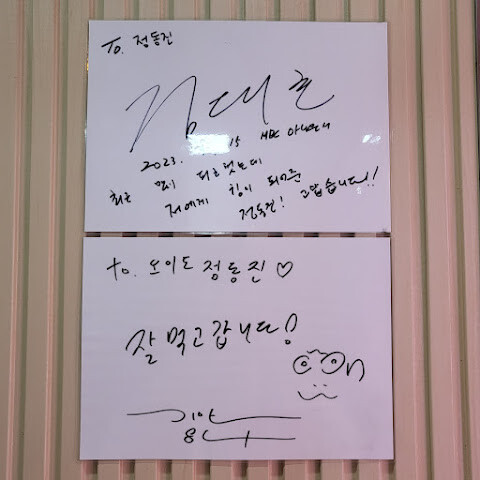 To. 정동진
김대호
2023. 15 MBC 아나운서
최초 먹이 되고팠는데
저에게 힘이 되어준
정동진! 고맙습니다!!
to. 오이도 정동진 ♡
잘 먹고 갑니다!
기안
84